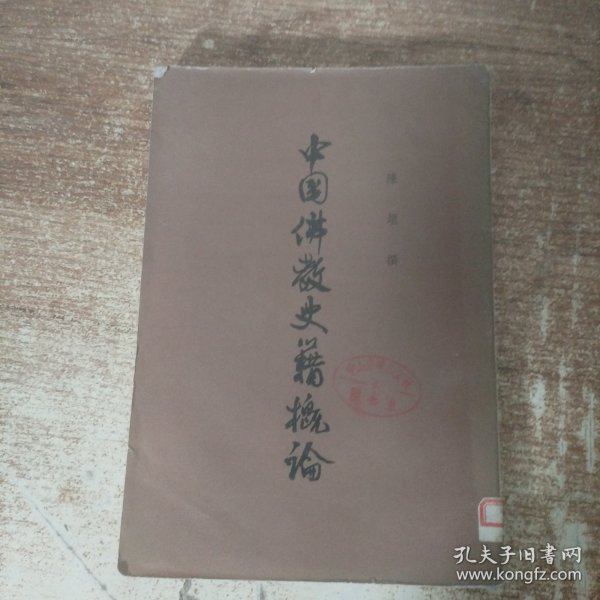 陳垣撰
中国佛教史籍概論
孔夫子旧书网
www.kongfz.com